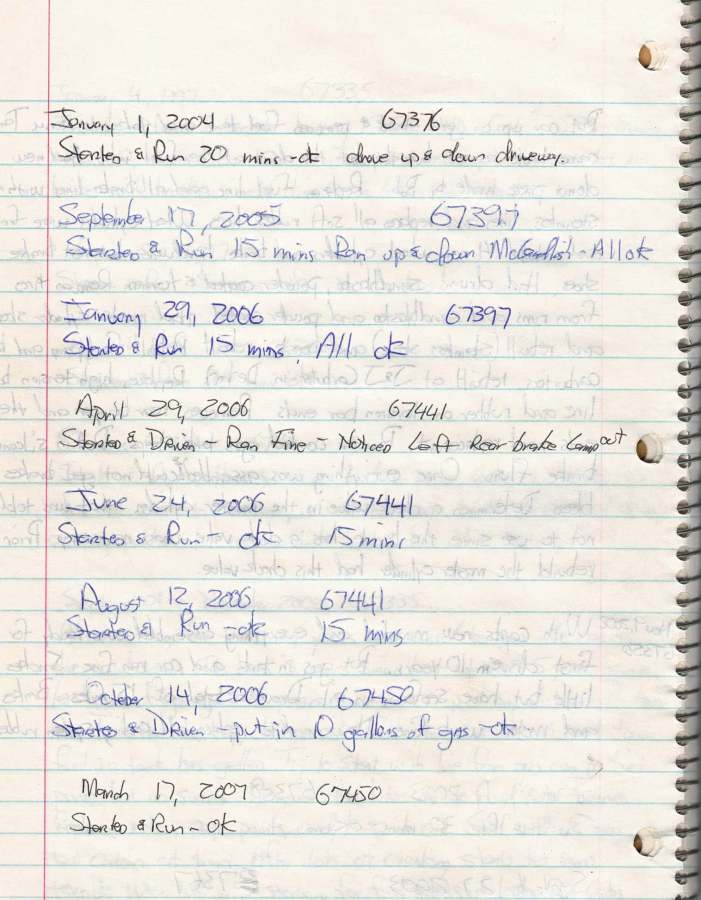 January 1, 2004 67376
Started & Run 20 mins - ok drove up & down driveway.
September 17, 2005 67397
Started & Run 15 mins Ran up & down - All ok
January 29, 2006 67397
Started & Run 15 mins. All ok
April 29, 2006 67441
Started & Driven - Ran Fine - Noticed Left Rear brake lamp out
June 24, 2006 67441
Started & Run ok 15 mins
August 12, 2006 67441
Started & Run - ok 15 mins
October 14, 2006 67450
Started & Driven - put in 10 gallons of gas - ok -
March 17, 2007 67450
Started & Run - ok